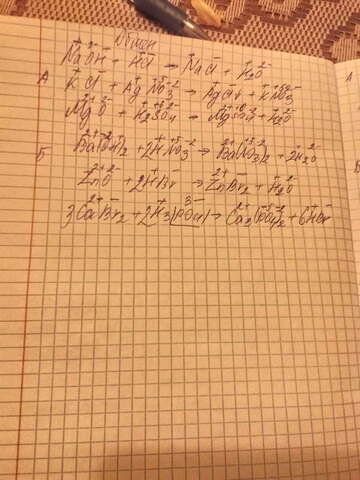 Обмен
NaOH + HCl → NaCl + H₂O
А KCl + AgNO₃ → AgCl + KNO₃
MgO + H₂SO₄ → MgSO₄ + H₂O
Ba(OH)₂ + 2HNO₃ → Ba(NO₃)₂ + 2H₂O
Б ZnO + 2HBr → ZnBr₂ + H₂O
3CaBr₂ + 2H₃(PO₄) → Ca₃(PO₄)₂ + 6HBr